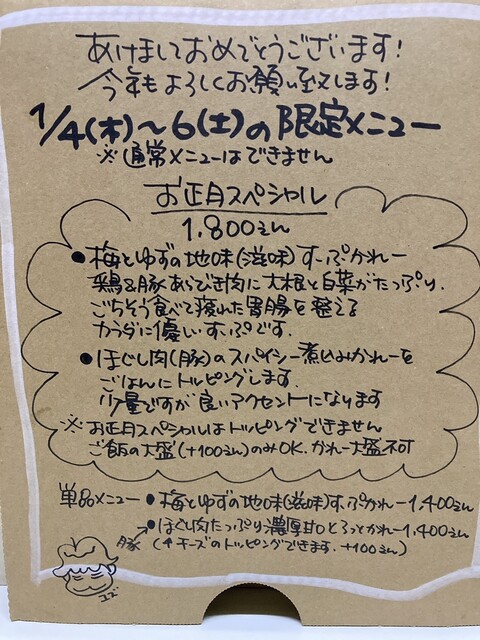 あけましておめでとうございます!
今年もよろしくお願い致します!
1/4(木)～6(土)の限定メニュー
※通常メニューはできません
お正月スペシャル
1,800えん
●梅とゆずの地味(滋味)すーぷかれー
鶏&豚あらびき肉に大根と白菜がたっぷり。
ごちそう食べて疲れた胃腸を整える
カラダに優しいすーぷです。
●ほぐし肉(豚)のスパイシー煮込みかれーを
ごはんにトッピングします。
少量ですが良いアクセントになります
※お正月スペシャルはトッピングできません
ご飯の大盛(+100えん)のみOK.かれー大盛不可
単品メニュー ●梅とゆずの地味(滋味)すーぷかれー1,400えん
●ほぐし肉たっぷり濃厚甘口とろっとかれー1,400えん
豚 (↑チーズのトッピングできます.+100えん)
ユズ